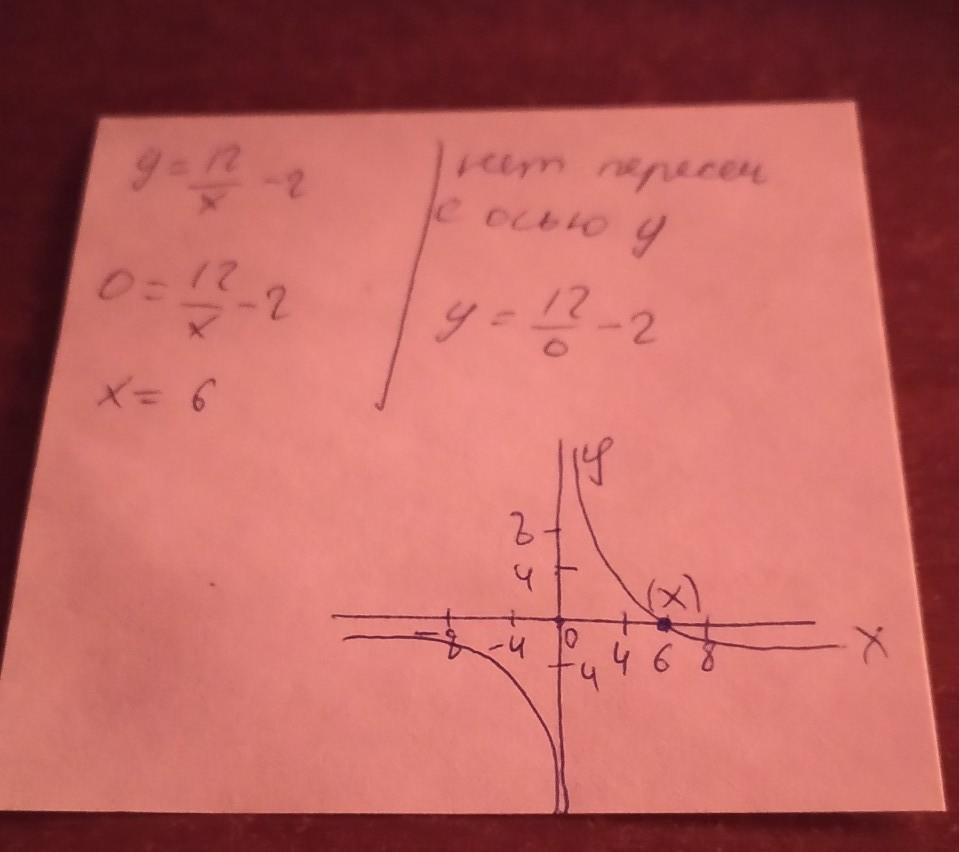 y = 12/x - 2
0 = 12/x - 2
x = 6
нет пересеч
с осью y
y = 12/0 - 2
y
8
4
(x)
-8 -4 0 4 6 8 x
-4